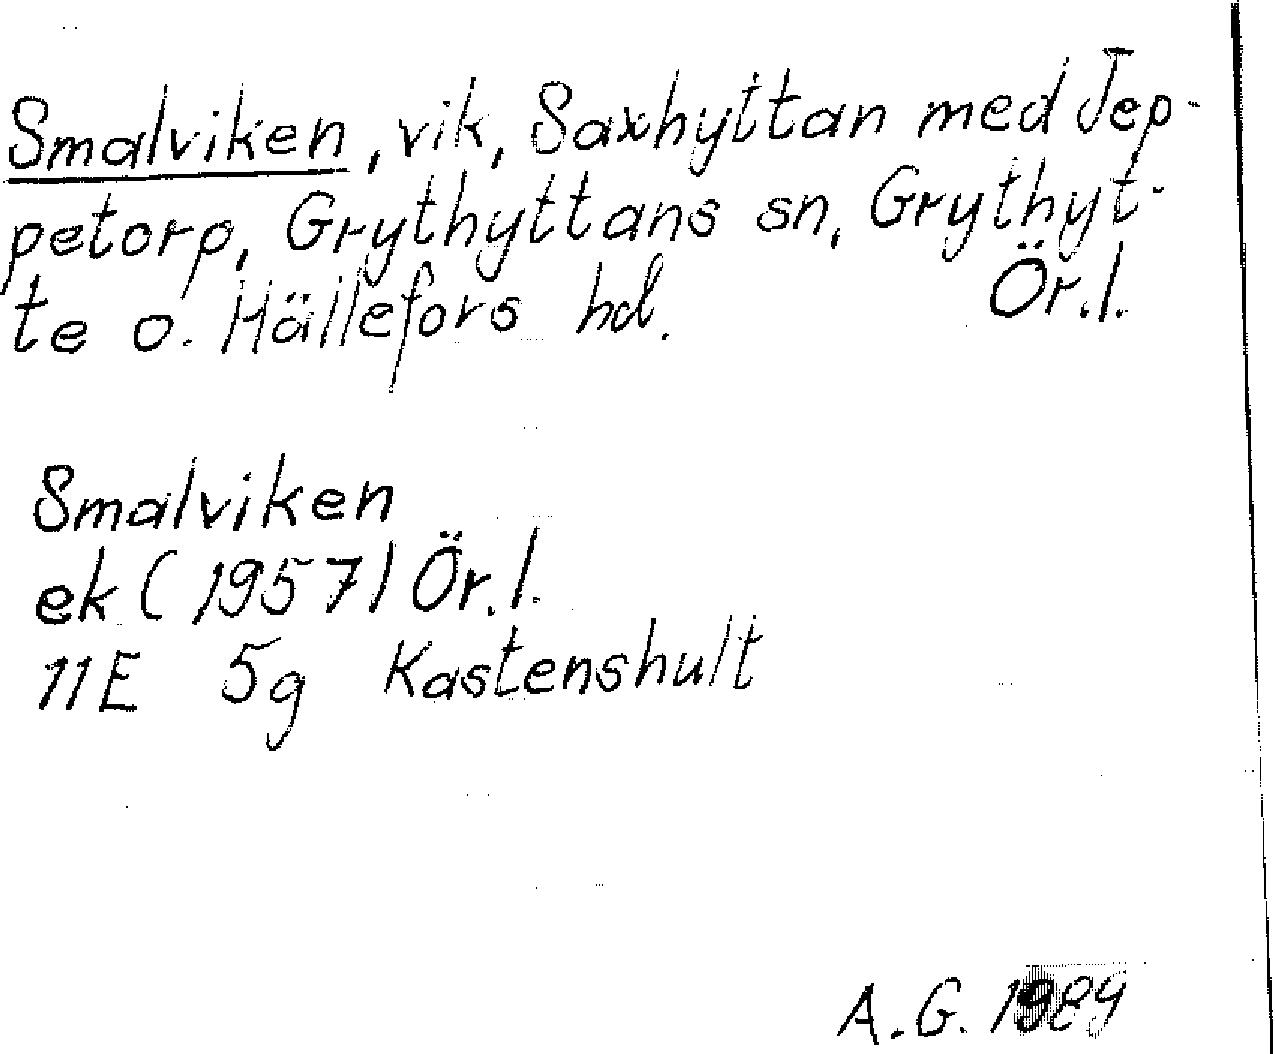 Smalviken, vik, Saxhyttan med Jep-
petorp, Grythyttans sn, Grythyt-
te o. Hällefors hd. Ör.l.
Smalviken
ek (1957) Ör.l.
11E 5g Kastenshult
A.G. 1989